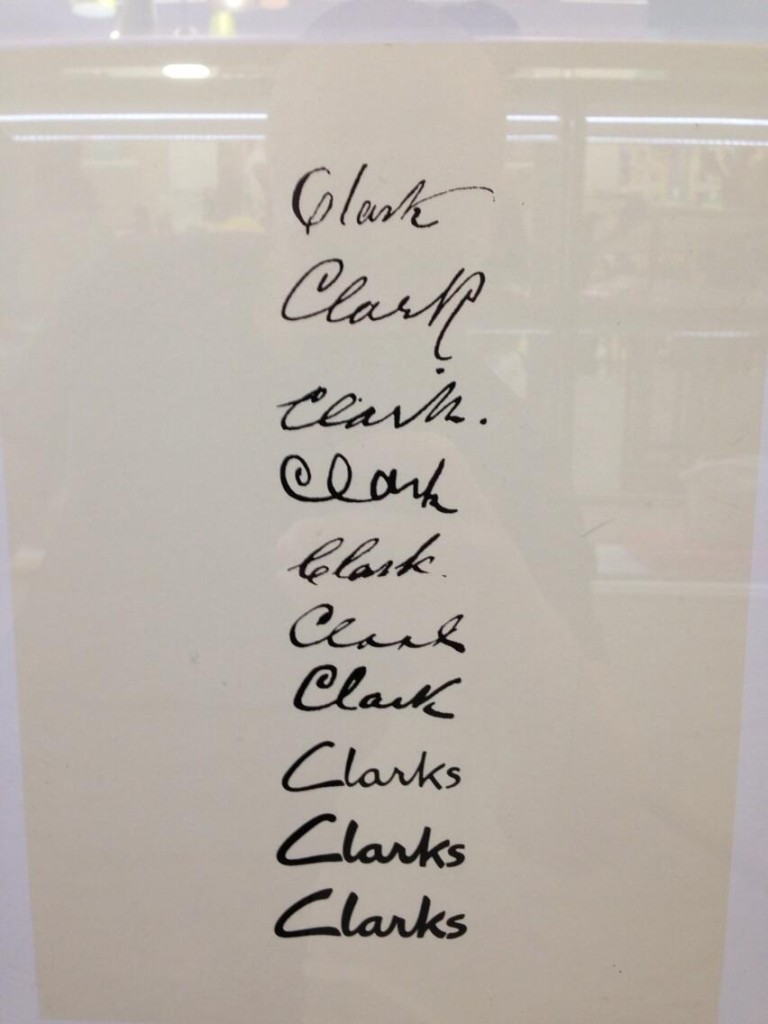 Clark
Clark
Clark.
Clark
Clark.
Clark
Clark
Clarks
Clarks
Clarks